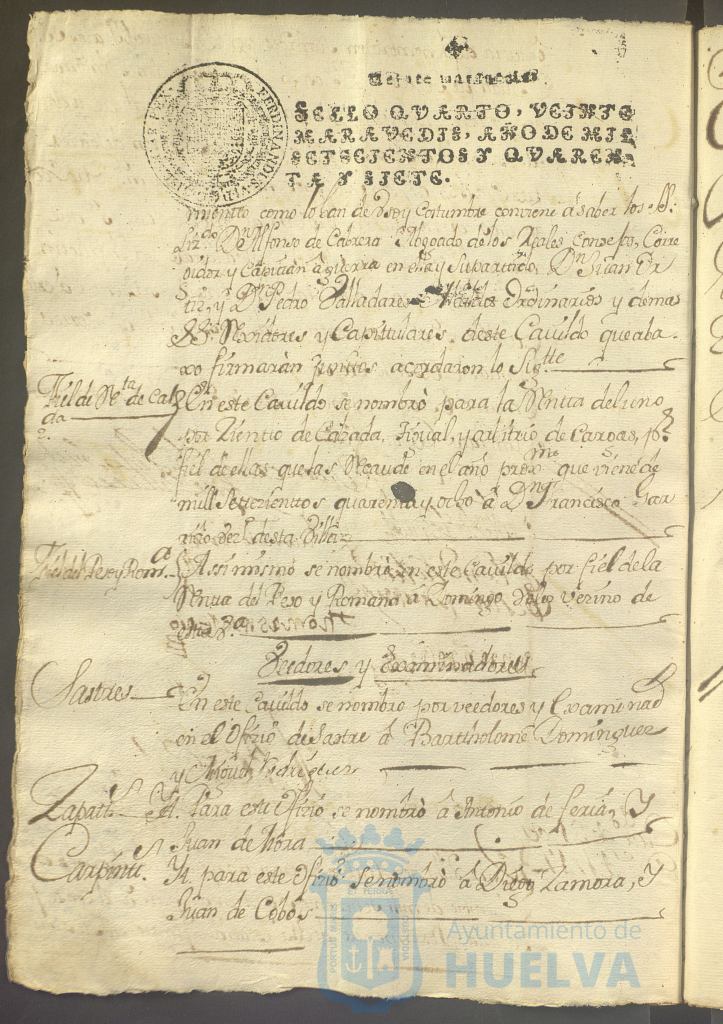 Veinte maravedis
SELLO QVARTO, VEINTE
MARAVEDIS, AÑO DE MIL
SETECIENTOS Y QVAREN
TA Y SIETE.
como lo han de Vso y Costumbre conviene â saber los S.
Lizdo. Dn. Alfonso de Cabrera Abogado de los Reales Consejos, Corre
xidor y Capitan â guerra en ella y su partido, Dn. Juan
y Dn. Pedro Valladares Alcaldes Ordinarios y demas
SSes. Rexidores y Capittulares deste Cavildo que aba
xo firmarán Juntos acordaron lo Sigtte
Fiel de Rta. de Calz
da
En este Cavildo se nombrò para la Rentta del uno
por Zientto de Calzada, y arbitrio de Cargas, pr.
fiel de ellas que las Recaude en el año proxmo. que viene de
mill Settezienttos quarentta y ocho â Dn. Francisco Gar
rido Vezo. desta Villa
Fiel del Peso y Roma.
Assi mismo se nombrò en este Cavildo por fiel de la
Rentta del Pexo y Romana a Domingo Vezino de
estta Va.
Veedores y Examinadores
Sastres
En este Cavildo se nombrò por veedores y Examinad
en el Ofizio de Sastre â Bartholomé Dominguez
y Rodriguez
Zapats.
Yt. Para estte Ofizio se nombrò â Antonio de Feria, Y
Juan de Mora
Carpints.
Yt. para este Ofizio se nombrò â Diego Zamora, Y
Juan de Cobos
Ayuntamiento de
HUELVA